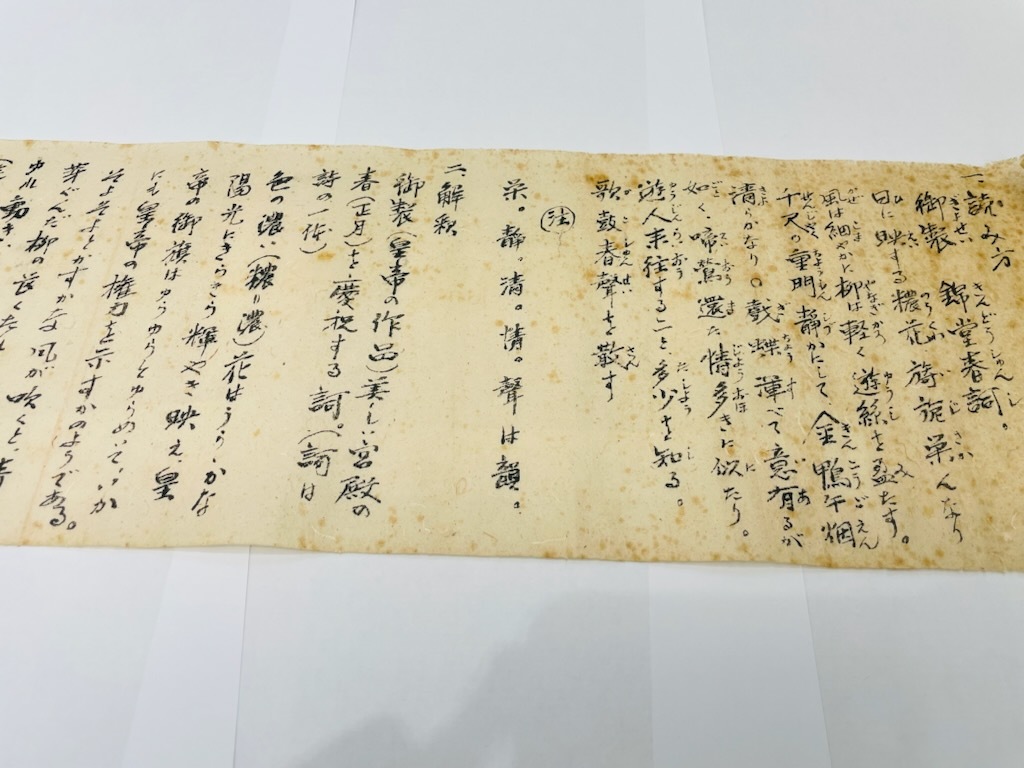 一、読み方
御製 錦堂春詞。
日に映する穠花 旖旎栄んなり
風は細やかに柳は軽く 遊絲を盈たす。
千尺の重門 静かにして 金鴨午烟
清らかなり。 戯蝶 薄べて 意有るが
如く、啼鶯 還た 情多きに似たり。
遊人来往すること 多少を知る。
歌鼓 春聲を散す
(注)
栄。静。清。情。聲は韻。
二、解釈
御製(皇帝の作品)美しい宮殿の
春(正月)を慶祝する詞。(詞は
詩の一体)
色の濃い(穠り濃)花はうららかな
陽光にきらきら輝やき映え、皇
帝の御旗はゆらゆらとゆらめいていか
にも皇帝の権力を示すかのようである。
そよそよとかすかな風が吹くと、青
芽ぐんだ柳の
ゆれ動き